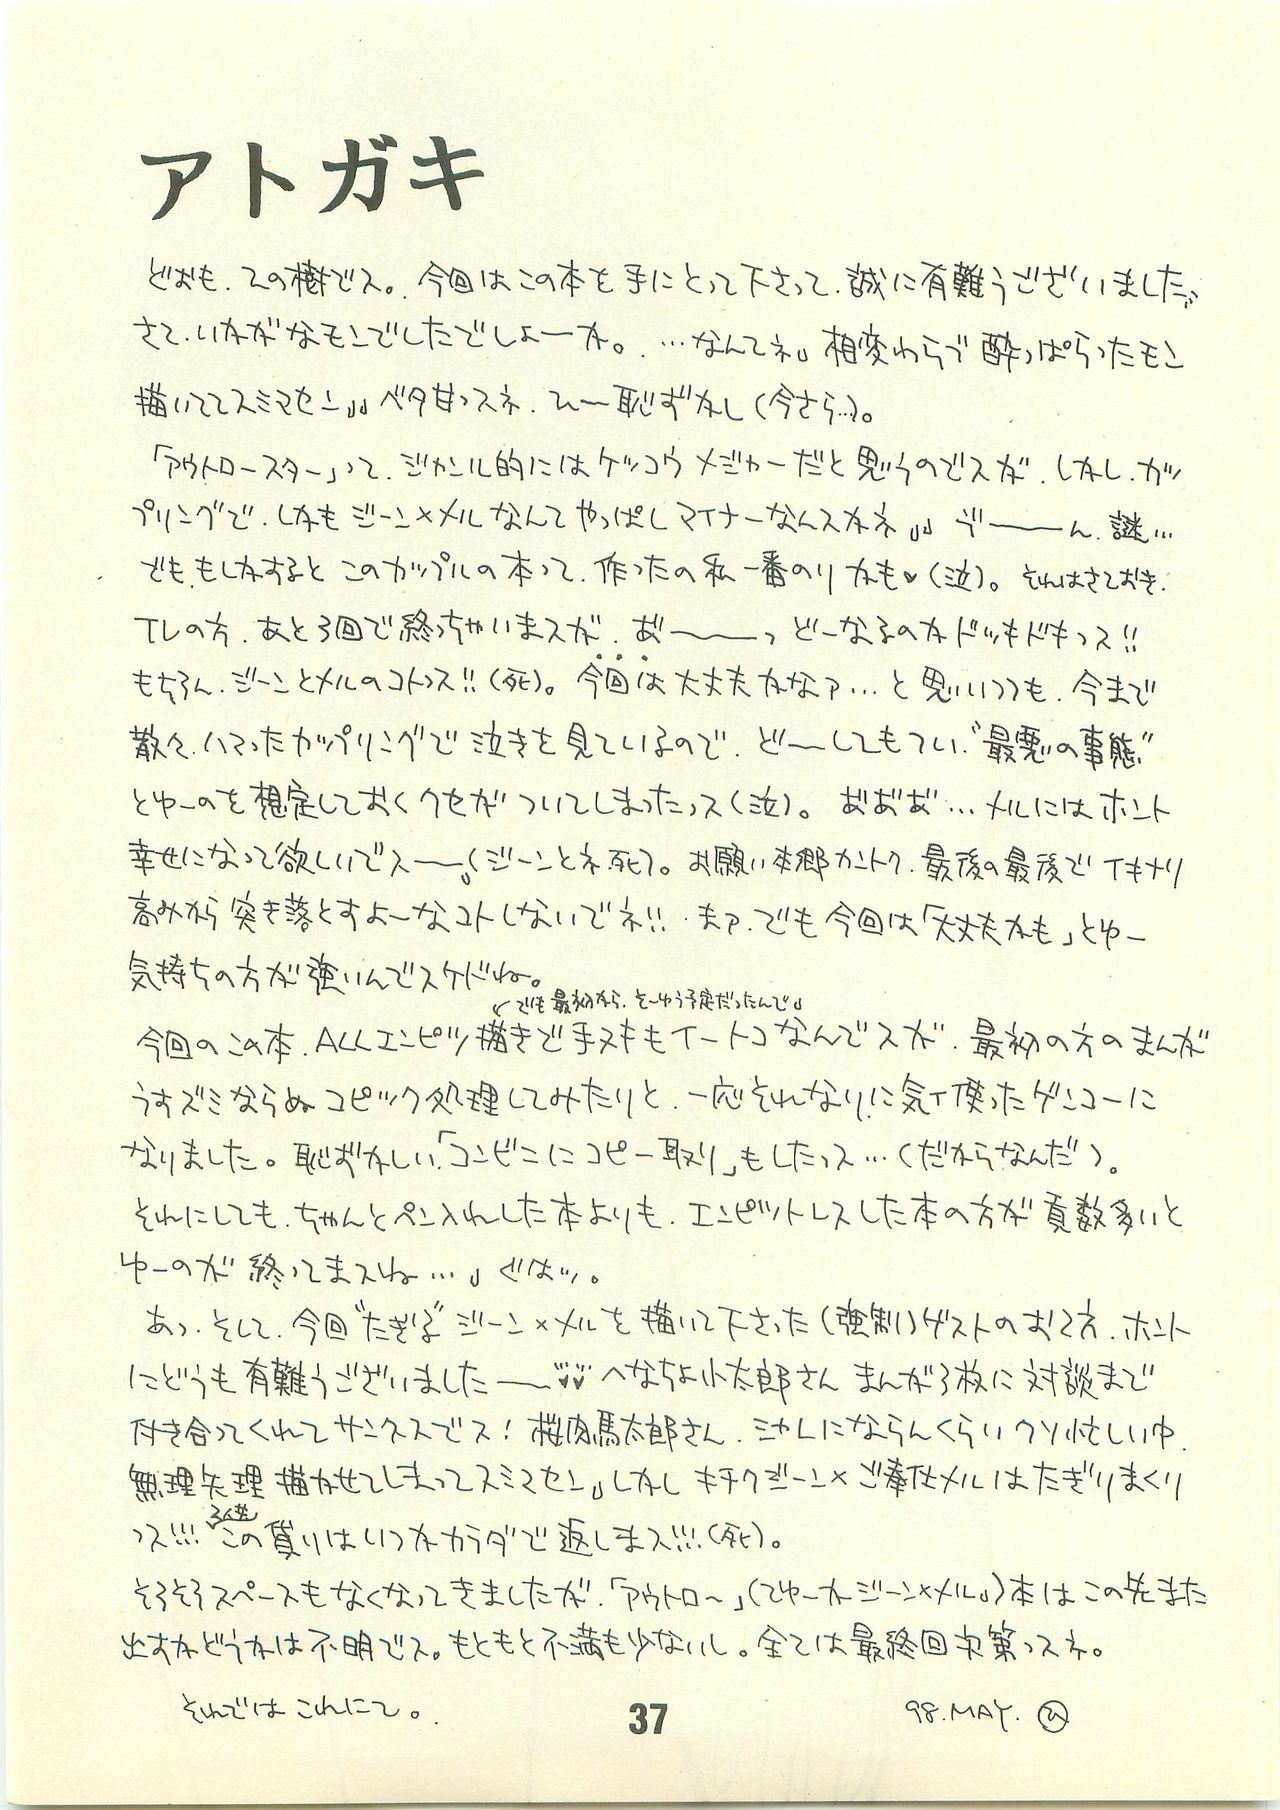 アトガキ
どおも、ひの樹でス。今回はこの本を手にとって下さって、誠に有難うございました。
さて、いかがなモンでしたでしょーか。…なんてネ。相変わらず酔っぱらったモン
描いててスミマセン。ベタ甘っスネ、ひー恥ずかし(今さら…)。
「アウトロースター」って、ジャンル的にはケッコウメジャーだと思うのでスが、しかし、カッ
プリングで、しかもジーン×メルなんてやっぱしマイナーなんスかネ。ゔーーん、謎…
でも、もしかするとこのカップルの本って、作ったの私一番のりかも♥(泣)。それはさておき、
TVの方、あと3回で終っちゃいまスが、あ゛ーーっどーなるのかドッキドキっス!!
もちろん、ジーンとメルのコトっス!!(死)。今回は大丈夫かなァ…と思いつつも、今まで
散々、ハマったカップリングで泣きを見ているので、どーしてもてい、"最悪の事態"
とゆーのを想定しておくクセがついてしまったっス(泣)。あ゛あ゛あ゛…メルにはホント
幸せになって欲しいでスー(ジーンとネ、死)。お願い本郷カントク、最後の最後でイキナリ
高みから突き落とすよーなコトしないでネ!!まァ、でも今回は「大丈夫かも」とゆー
気持ちの方が強いんでスケドね。
↙でも最初から、そーゆう予定だったんで
今回のこの本、ALLエンピツ描きで手ヌキもイートコなんでスが、最初の方のまんが
うすズミならぬコピック処理してみたりと、一応それなりに気イ使ったゲンコーに
なりました。恥ずかしい、「コンビニにコピー取り」もしたっス…(だからなんだ)。
それにしても、ちゃんとペン入れした本よりも、エンピツトレスした本の方が頁数多いと
ゆーのが終ってまスね…」ぐはッ。
あっ、そして、今回"たぎる"ジーン×メルを描いて下さった(強制)ゲストのお2方、ホント
にどうも有難うございましたー♥♥へなちょ小太郎さんまんが3枚に対談まで
付き合ってくれてサンクスでス!桜肉馬太郎さん、シャレにならんくらいクソ忙しい中、
無理矢理描かせてしまってスミマセン。しかしキチクジーン×ご奉仕メルはたぎりまくり
っス!!!この貸りはいつかカラダで返しまス!!!(死)。
そろそろスペースもなくなってきましたが、「アウトロ〜」(てゆーかジーン×メル)本はこの先また
出すかどうかは不明でス。もともと不満も少ないし。全ては最終回次第っスネ。
それではこれにて。
98.MAY. ひ
37